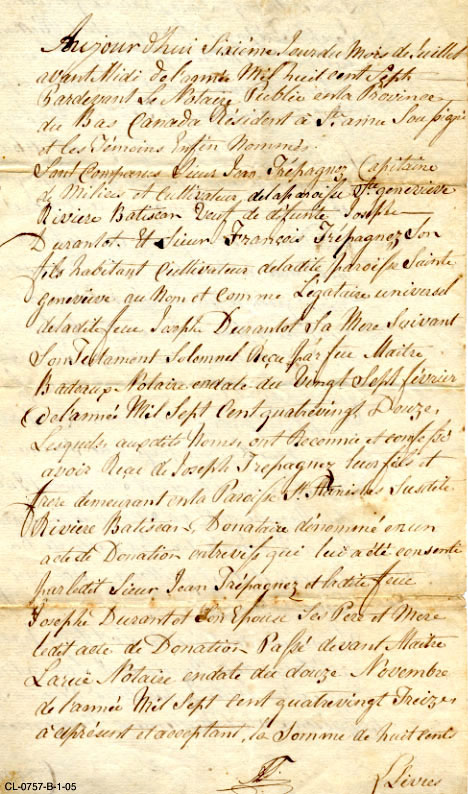 Aujourd'hui Sixiéme Jour du Mois de Juillet
avant Midi de l'année Mil huit cent Sept
Pardevant Le Notaire Public en la Province
du Bas Canada Résident à Ste anne Soussigné
et les Témoins Enfin Nommés.
Sont Comparus Sieur Jean Trépagnez Capitaine
de Milices et Cultivateur, de la paroisse Ste geneviève
Rivière Batiscan Veuf de défunte Josephe
Durantot. Et Sieur François Trépagnez Son
fils habitant Cultivateur de ladite paroisse Sainte
geneviève au Nom et comme Légataire universel
de ladite feue Josephe Durantot Sa Mere Suivant
Son Testament Solemnel Reçu par feu Maitre
Badeaux Notaire en date du Vingt Sept février
de l'année Mil Sept Cent quatrevingt Douze,
Lesquels auxdits Noms, ont Reconnu et confessé
avoir Reçu de Joseph Trépagnez leur fils et
frere demeurant en la Paroisse St. Stanislas Susdite
Rivière Batiscan, Donataire dénommé en un
acte de Donation entrevifs qui lui a été consenti
par ledit Sieur Jean Trépagnez et ladite feue
Josephe Durantot Son Epouse Ses Pere et Mere
ledit acte de Donation Passé devant Maitre
Larue Notaire en date du douze Novembre
de l'année Mil Sept Cent quatrevingt Treize,
à ce présent et acceptant, la Somme de huit cents
Livres
CL-0757-B-1-05